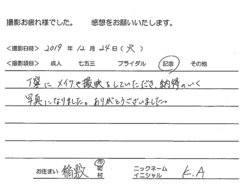 撮影お疲れ様でした。 感想をお願いいたします。
<撮影日時> 2019 年 12 月 24 日 (火)
<撮影項目> 成人 七五三 ブライダル 記念 その他
丁寧にメイクや撮影をしていただき、納得のいく
写真になりました。ありがとうございました。
お住まい 稲敷 市 町 村 ニックネーム イニシャル K.A